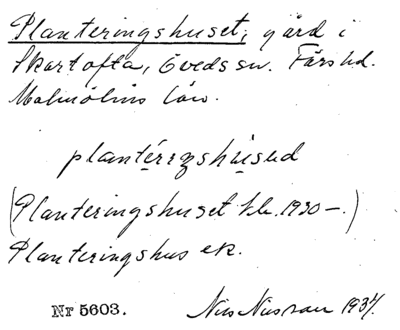 Planteringshuset, gård i
Skartofta, Öveds sn. Färs hd.
Malmöhus län.
plantérızshúsəd
(Planteringshuset kb. 1930 –.)
Planteringshus ek.
Nr 5603. Nils Nilsson 1937.